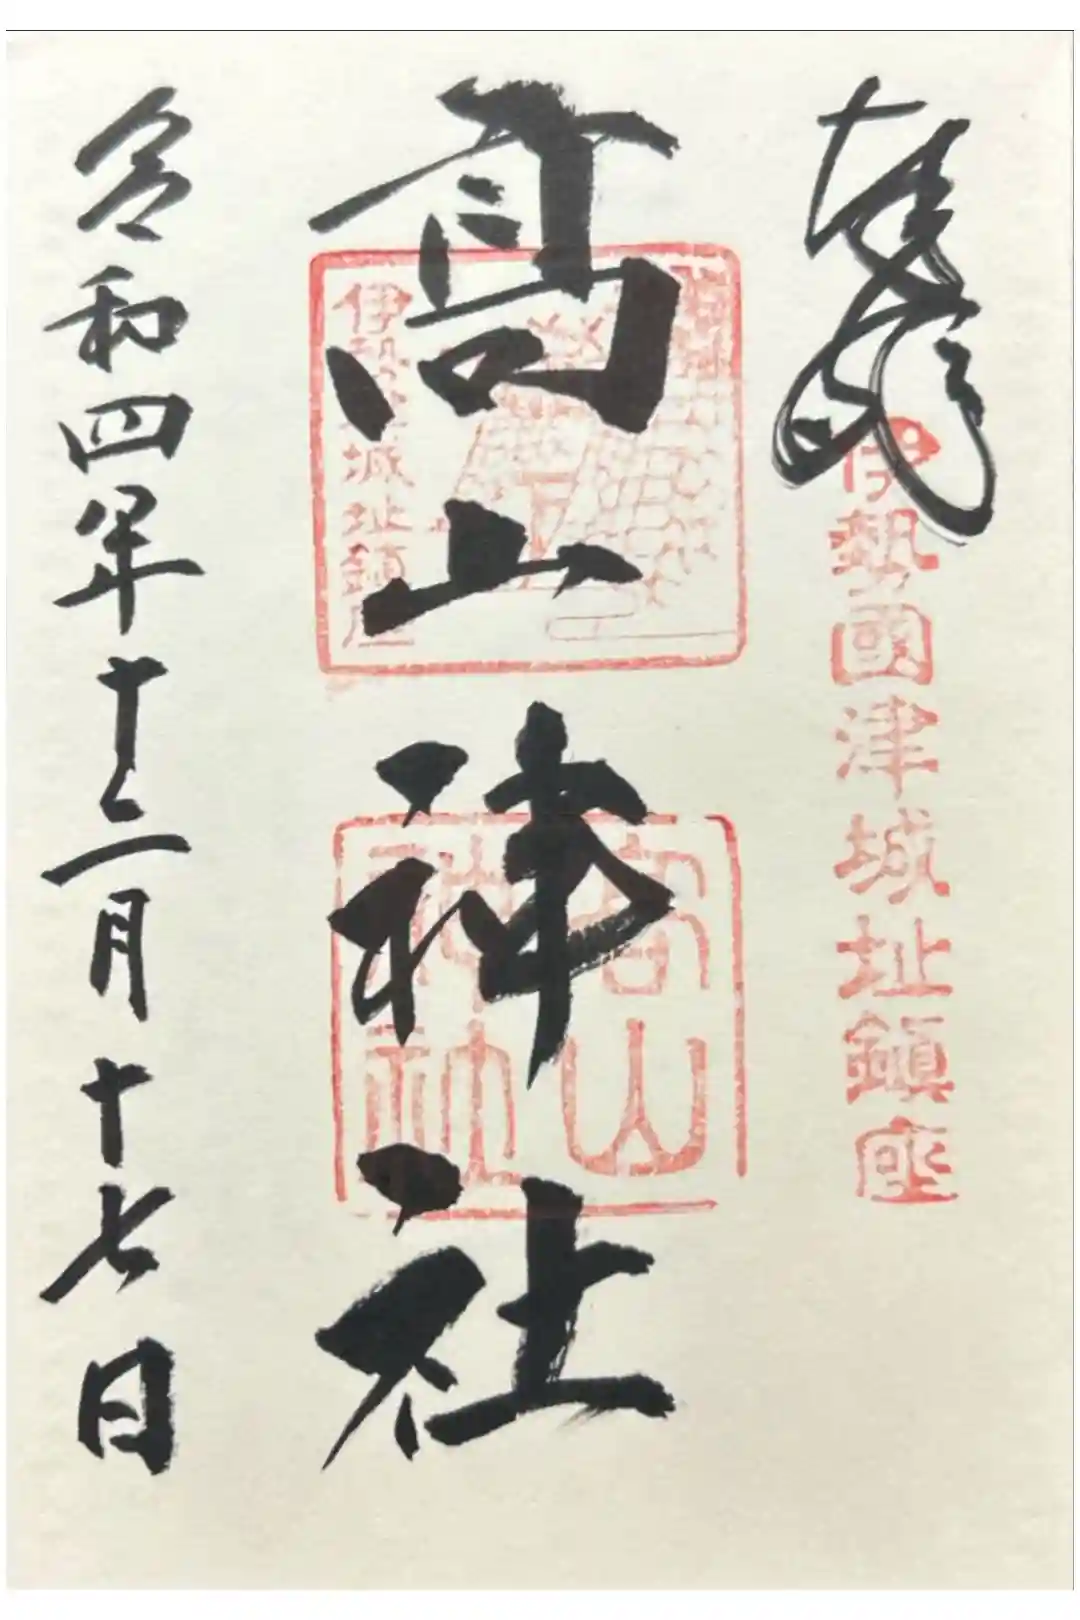 奉拝
伊勢國津城址鎮座
高山神社
伊勢津城址鎮座
高山神社
令和四年十二月十七日